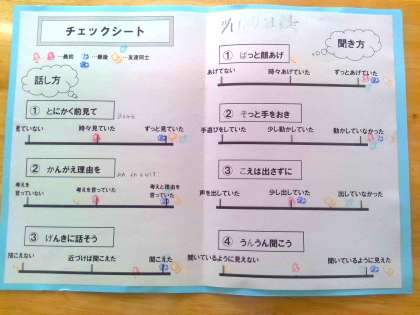 チェックシート
…最初 …最後 …友達同士
話し方
① とにかく前見て
見ていない 時々見ていた ずっと見ていた
② かんがえ理由を
考えを言っていない 考えを言っていた 考えと理由を言っていた
③ げんきに話そう
聞こえない 近づけば聞こえた 聞こえた
聞き方
① ぱっと顔あげ
あげてない 時々あげていた ずっとあげていた
② そっと手をおき
手遊びをしていた 少し動かしていた 動かしていなかった
③ こえは出さずに
声を出していた 少し出していた 出していなかった
④ うんうん聞こう
聞いているように見えない 聞いているように見えた